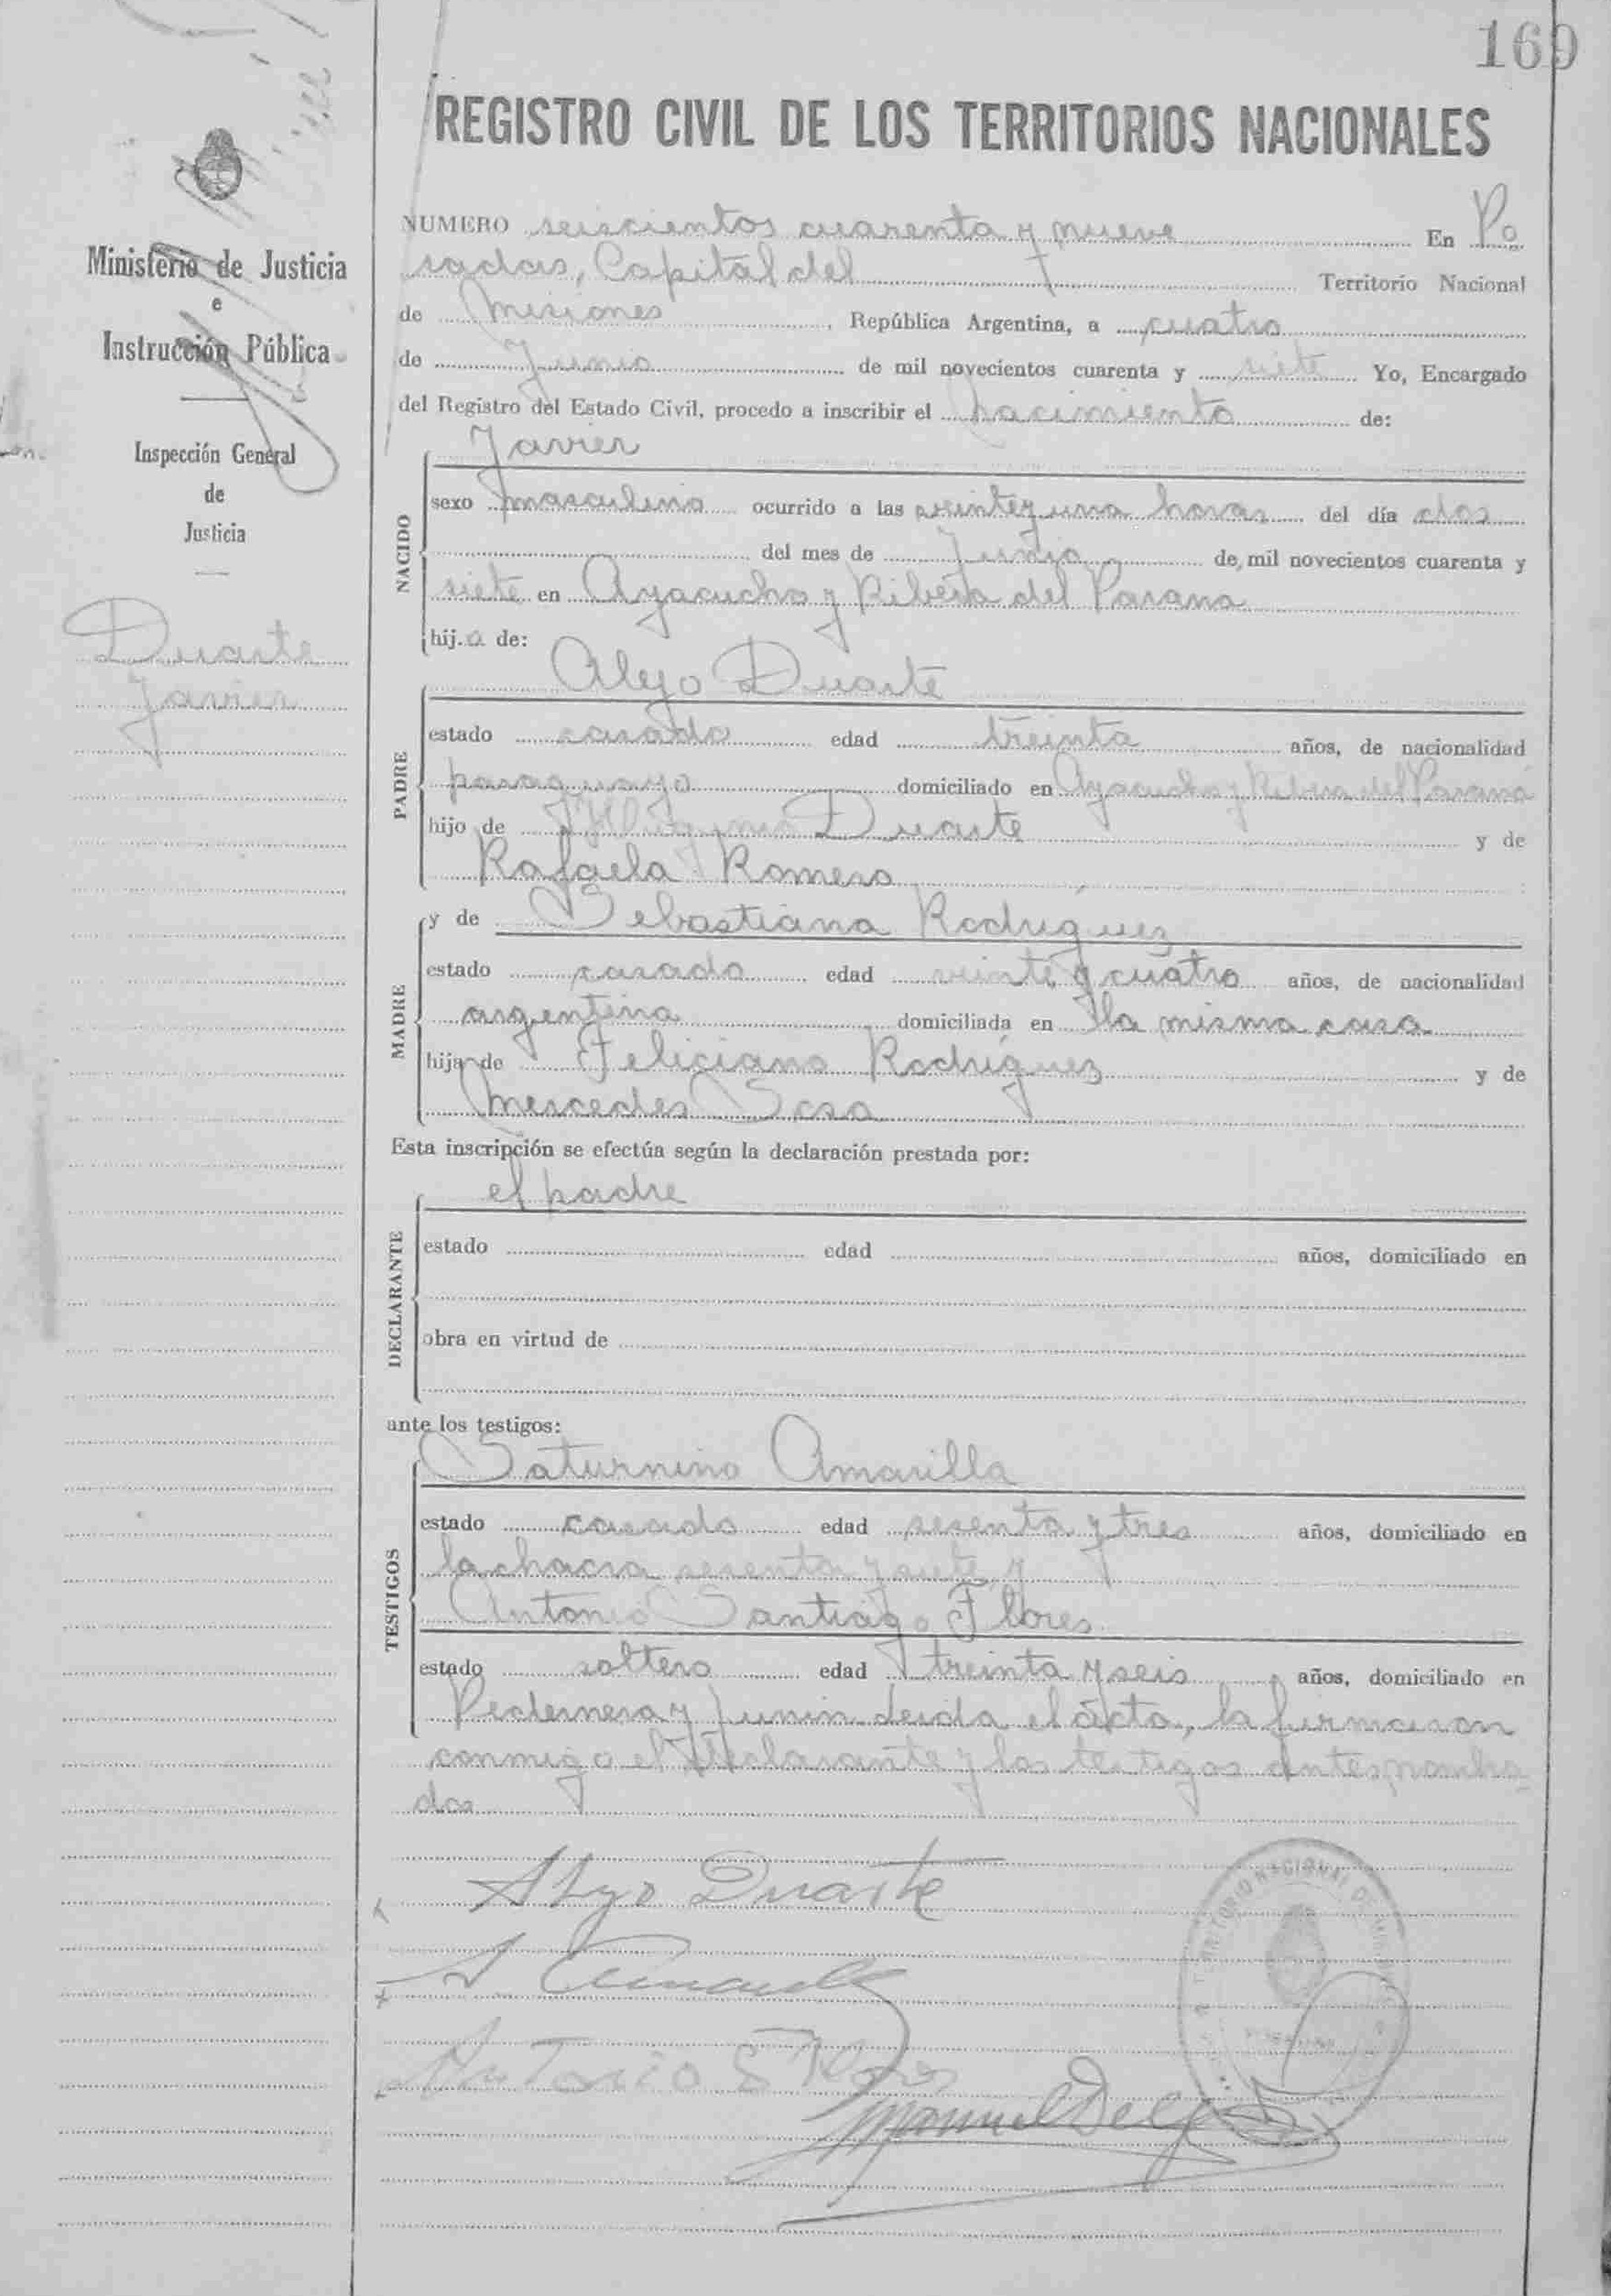 169
REGISTRO CIVIL DE LOS TERRITORIOS NACIONALES
Ministerio de Justicia
e
Instrucción Pública
Inspección General
de
Justicia
Duarte
Javier
NUMERO seiscientos cuarenta y nueve En Po
sadas, Capital del Territorio Nacional
de Misiones, República Argentina, a cuatro
de Junio de mil novecientos cuarenta y siete Yo, Encargado
del Registro del Estado Civil, procedo a inscribir el nacimiento de:
NACIDO
Javier
sexo masculino ocurrido a las veinte y una horas del día dos
del mes de Junio de mil novecientos cuarenta y
siete en Ayacucho y Ribera del Parana
hijo de:
PADRE
Alejo Duarte
estado casado edad treinta años, de nacionalidad
paraguayo domiciliado en Ayacucho y Ribera del Paraná
hijo de Duarte y de
Rafaela Romero
MADRE
y de Sebastiana Rodriguez
estado casada edad veinte y cuatro años, de nacionalidad
argentina domiciliada en la misma casa
hija de Feliciano Rodriguez y de
Mercedes Sosa
Esta inscripción se efectúa según la declaración prestada por:
DECLARANTE
el padre
estado edad años, domiciliado en
obra en virtud de
ante los testigos:
TESTIGOS
Saturnino Amarilla
estado casado edad sesenta y tres años, domiciliado en
la chacra sesenta y siete y
Antonio Santiago Flores
estado soltero edad treinta y seis años, domiciliado en
Pedernera y Junin leida el acta, la firmaron
conmigo el declarante y los testigos antes nombra
dos
Alejo Duarte
S Amarilla
Antonio S Flores
Manuel
TERRITORIO NACIONAL DE MISIONES